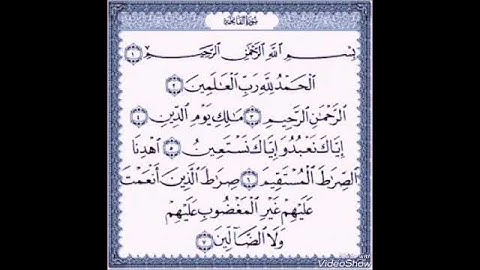 سُورَةُ الفَاتِحَةِ
بِسْمِ اللَّهِ الرَّحْمَٰنِ الرَّحِيمِ ١
الْحَمْدُ لِلَّهِ رَبِّ الْعَالَمِينَ ٢
الرَّحْمَٰنِ الرَّحِيمِ ٣ مَالِكِ يَوْمِ الدِّينِ ٤
إِيَّاكَ نَعْبُدُ وَإِيَّاكَ نَسْتَعِينُ ٥ اهْدِنَا
الصِّرَاطَ الْمُسْتَقِيمَ ٦ صِرَاطَ الَّذِينَ أَنْعَمْتَ
عَلَيْهِمْ غَيْرِ الْمَغْضُوبِ عَلَيْهِمْ
وَلَا الضَّالِّينَ ٧
VideoShow